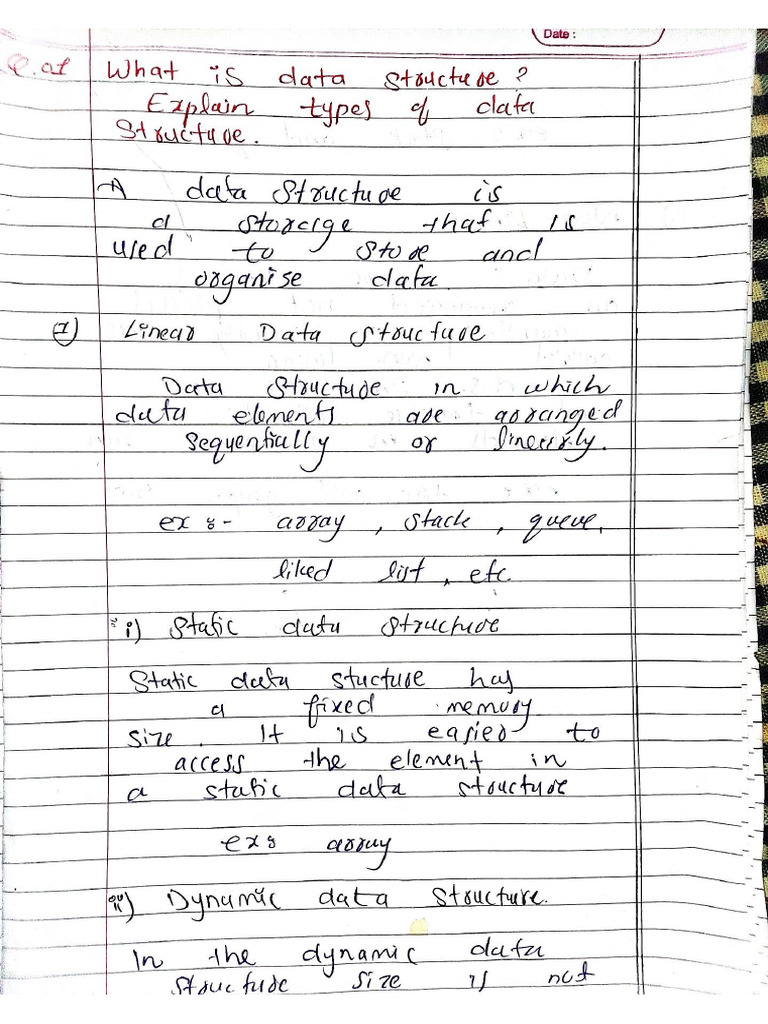 Date :
Q.01 What is data structure?
Explain types of data
structure.
A data structure is
a storage that is
used to store and
organise data.
1) Linear Data structure
Data structure in which
data elements are arranged
sequentially or linearly.
ex :- array , stack , queue,
liked list , etc
i) Static data structure
Static data stucture has
a fixed memory
size. It is easier to
access the element in
a static data structure
ex: array
ii) Dynamic data structure.
In the dynamic data
structure size is not